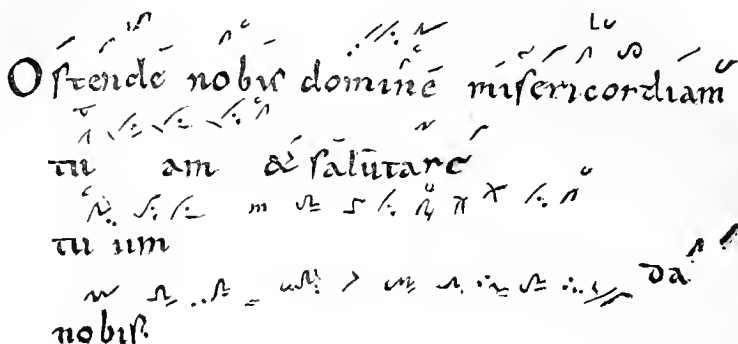 Ostende nobis domine misericordiam
tu am & salutare
tu um
da
nobis.